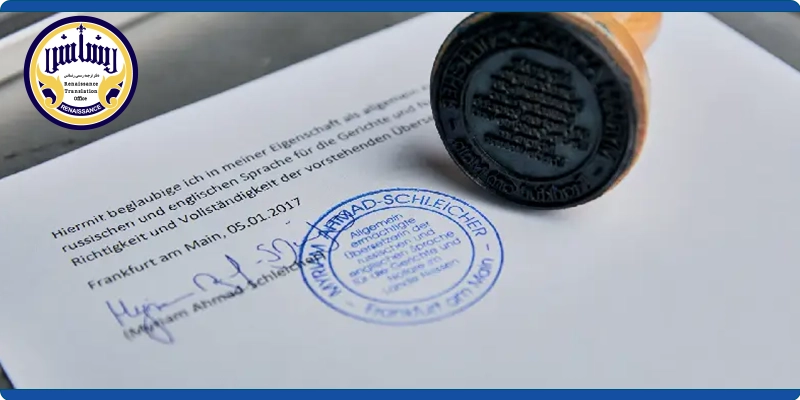 رنسانس
دفتر ترجمه رسمی رنسانس
Renaissance
Translation
Office
RENAISSANCE
Hiermit beglaubige ich in meiner Eigenschaft als allgemein
russischen und englischen Sprache für die Gerichte und
Richtigkeit und Vollständigkeit der vorstehenden
Frankfurt am Main, 05.01.2017
(Myriam Ahmad-Schleicher)
MYRIAM AHMAD-SCHLEICHER
Allgemein
ermächtigte
Übersetzerin der
russischen und
englischen Sprache
für die Gerichte und
Notare im
Lande Hessen
– Frankfurt am Main –